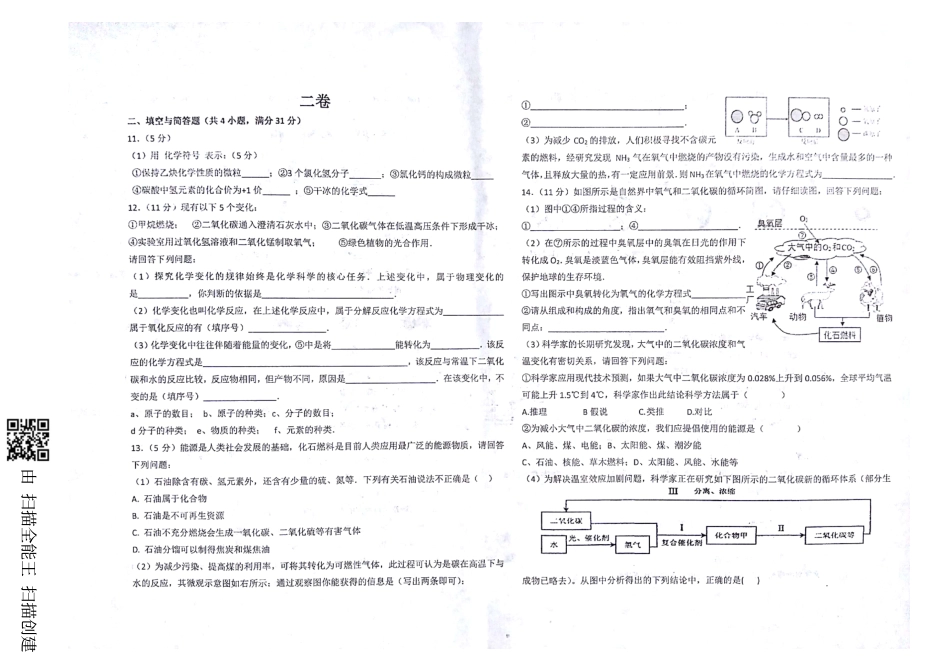 二卷
二、填空与简答题（共4小题，满分31分）
11.（5分）
（1）用 化学符号 表示:（5分）
①保持乙炔化学性质的微粒______；②3个氯化氢分子______；③氯化钙的构成微粒____
④碳酸中氢元素的化合价为+1价______；⑤干冰的化学式______
12.（11分）现有以下5个变化:
①甲烷燃烧； ②二氧化碳通入澄清石灰水中；③二氧化碳气体在低温高压条件下形成干冰；
④实验室用过氧化氢溶液和二氧化锰制取氧气； ⑤绿色植物的光合作用.
请回答下列问题:
（1）探究化学变化的规律始终是化学科学的核心任务．上述变化中，属于物理变化的
是__________，你判断的依据是__________________________.
（2）化学变化也叫化学反应，在上述化学反应中，属于分解反应化学方程式为____________
属于氧化反应的有（填序号）________________.
（3）化学变化中往往伴随着能量的变化，⑤中是将____________能转化为__________．该反
应的化学方程式是________________________________________，该反应与常温下二氧化
碳和水的反应比较，反应物相同，但产物不同，原因是__________________．在该变化中，不
变的是（填序号）______________.
a、原子的数目； b、原子的种类；c、分子的数目；
d分子的种类； e、物质的种类； f、元素的种类.
13.（5分）能源是人类社会发展的基础，化石燃料是目前人类应用最广泛的能源物质，请回答
下列问题:
（1）石油除含有碳、氢元素外，还含有少量的硫、氮等．下列有关石油说法不正确是（ ）
A. 石油属于化合物
B. 石油是不可再生资源
C. 石油不充分燃烧会生成一氧化碳、二氧化硫等有害气体
D. 石油分馏可以制得焦炭和煤焦油
（2）为减少污染、提高煤的利用率，可将其转化为可燃性气体，此过程可认为是碳在高温下与
水的反应，其微观示意图如右所示：通过观察图你能获得的信息是（写出两条即可）:
①______________________________；
②______________________________.
A B
C D
（3）为减少CO₂的排放，人们积极寻找不含碳元
素的燃料，经研究发现 NH₃ 气在氧气中燃烧的产物没有污染，生成水和空气中含量最多的一种
气体,且释放大量的热,有一定应用前景.则NH₃在氧气中燃烧的化学方程式为______________.
14.（11分）如图所示是自然界中氧气和二氧化碳的循环简图，请仔细读图，回答下列问题:
（1）图中①④所指过程的含义:
①__________________；④______________.
（2）在⑦所示的过程中臭氧层中的臭氧在日光的作用下
转化成O₂．臭氧是淡蓝色气体，臭氧层能有效阻挡紫外线，
保护地球的生存环境.
①写出图示中臭氧转化为氧气的化学方程式____________
②请从组成和构成的角度，指出氧气和臭氧的相同点和不
同点：________________________.
臭氧层
O₃
⑦
大气中的O₂和CO₂
① ② ③ ④ ⑤ ⑥
工厂
汽车
动物
植物
化石燃料
（3）科学家的长期研究发现，大气中的二氧化碳浓度和气
温变化有密切关系，请回答下列问题:
①科学家应用现代技术预测，如果大气中二氧化碳浓度为0.028%上升到0.056%，全球平均气温
可能上升1.5℃到4℃，科学家作出此结论科学方法属于（ ）
A.推理 B 假说 C.类推 D.对比
②为减小大气中二氧化碳的浓度，我们应提倡使用的能源是（ ）
A、风能、煤、电能；B、太阳能、煤、潮汐能
C、石油、核能、草木燃料；D、太阳能、风能、水能等
（4）为解决温室效应加剧问题，科学家正在研究如下图所示的二氧化碳新的循环体系（部分生
III 分离、浓缩
二氧化碳
水
光、催化剂
氢气
I
复合催化剂
化合物甲
II
二氧化碳等
成物已略去）。从图中分析得出的下列结论中，正确的是( )
由 扫描全能王 扫描创建